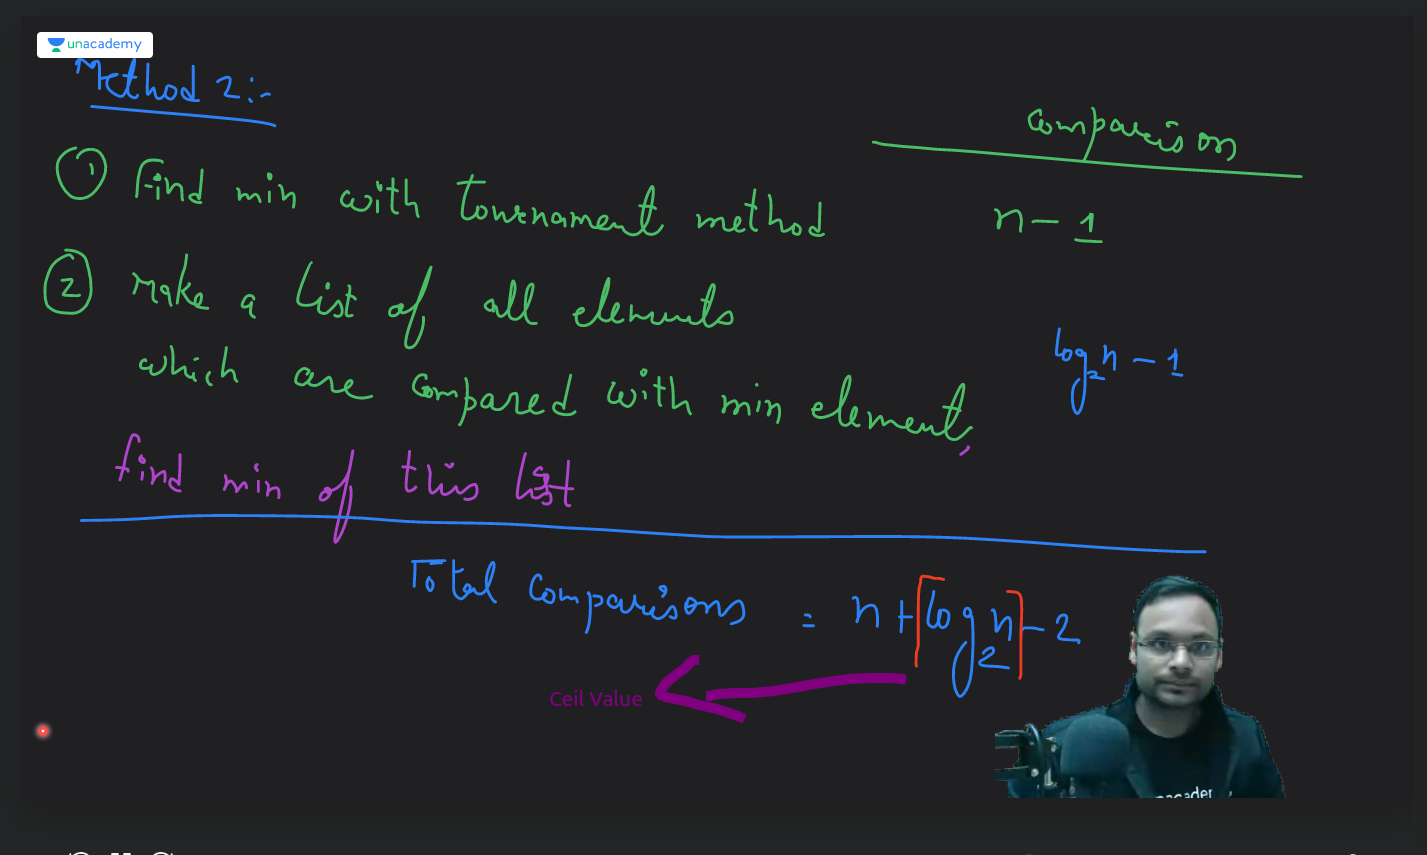 unacademy
Method 2:-
comparison
① Find min with Tournament method
n - 1
② Make a list of all elements
which are compared with min element,
log₂n - 1
find min of this list
Total Comparisons = n + ⌈log₂n⌉ - 2
Ceil Value